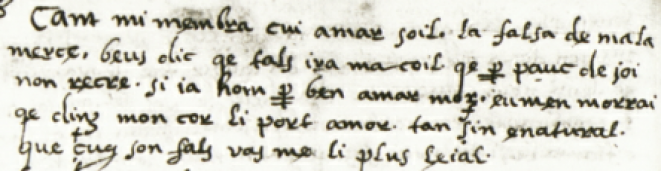 Cant mi membra cui amar soil. la falsa de mala
merce. beus dic qe tals ira ma coil qe ꝑ pauc de joi
non recre. si ia hom ꝑ ben amar mor. eu men morrai
qe dinz mon cor li port amor. tan fin enatural.
que cug son fals vas me li plus leial.